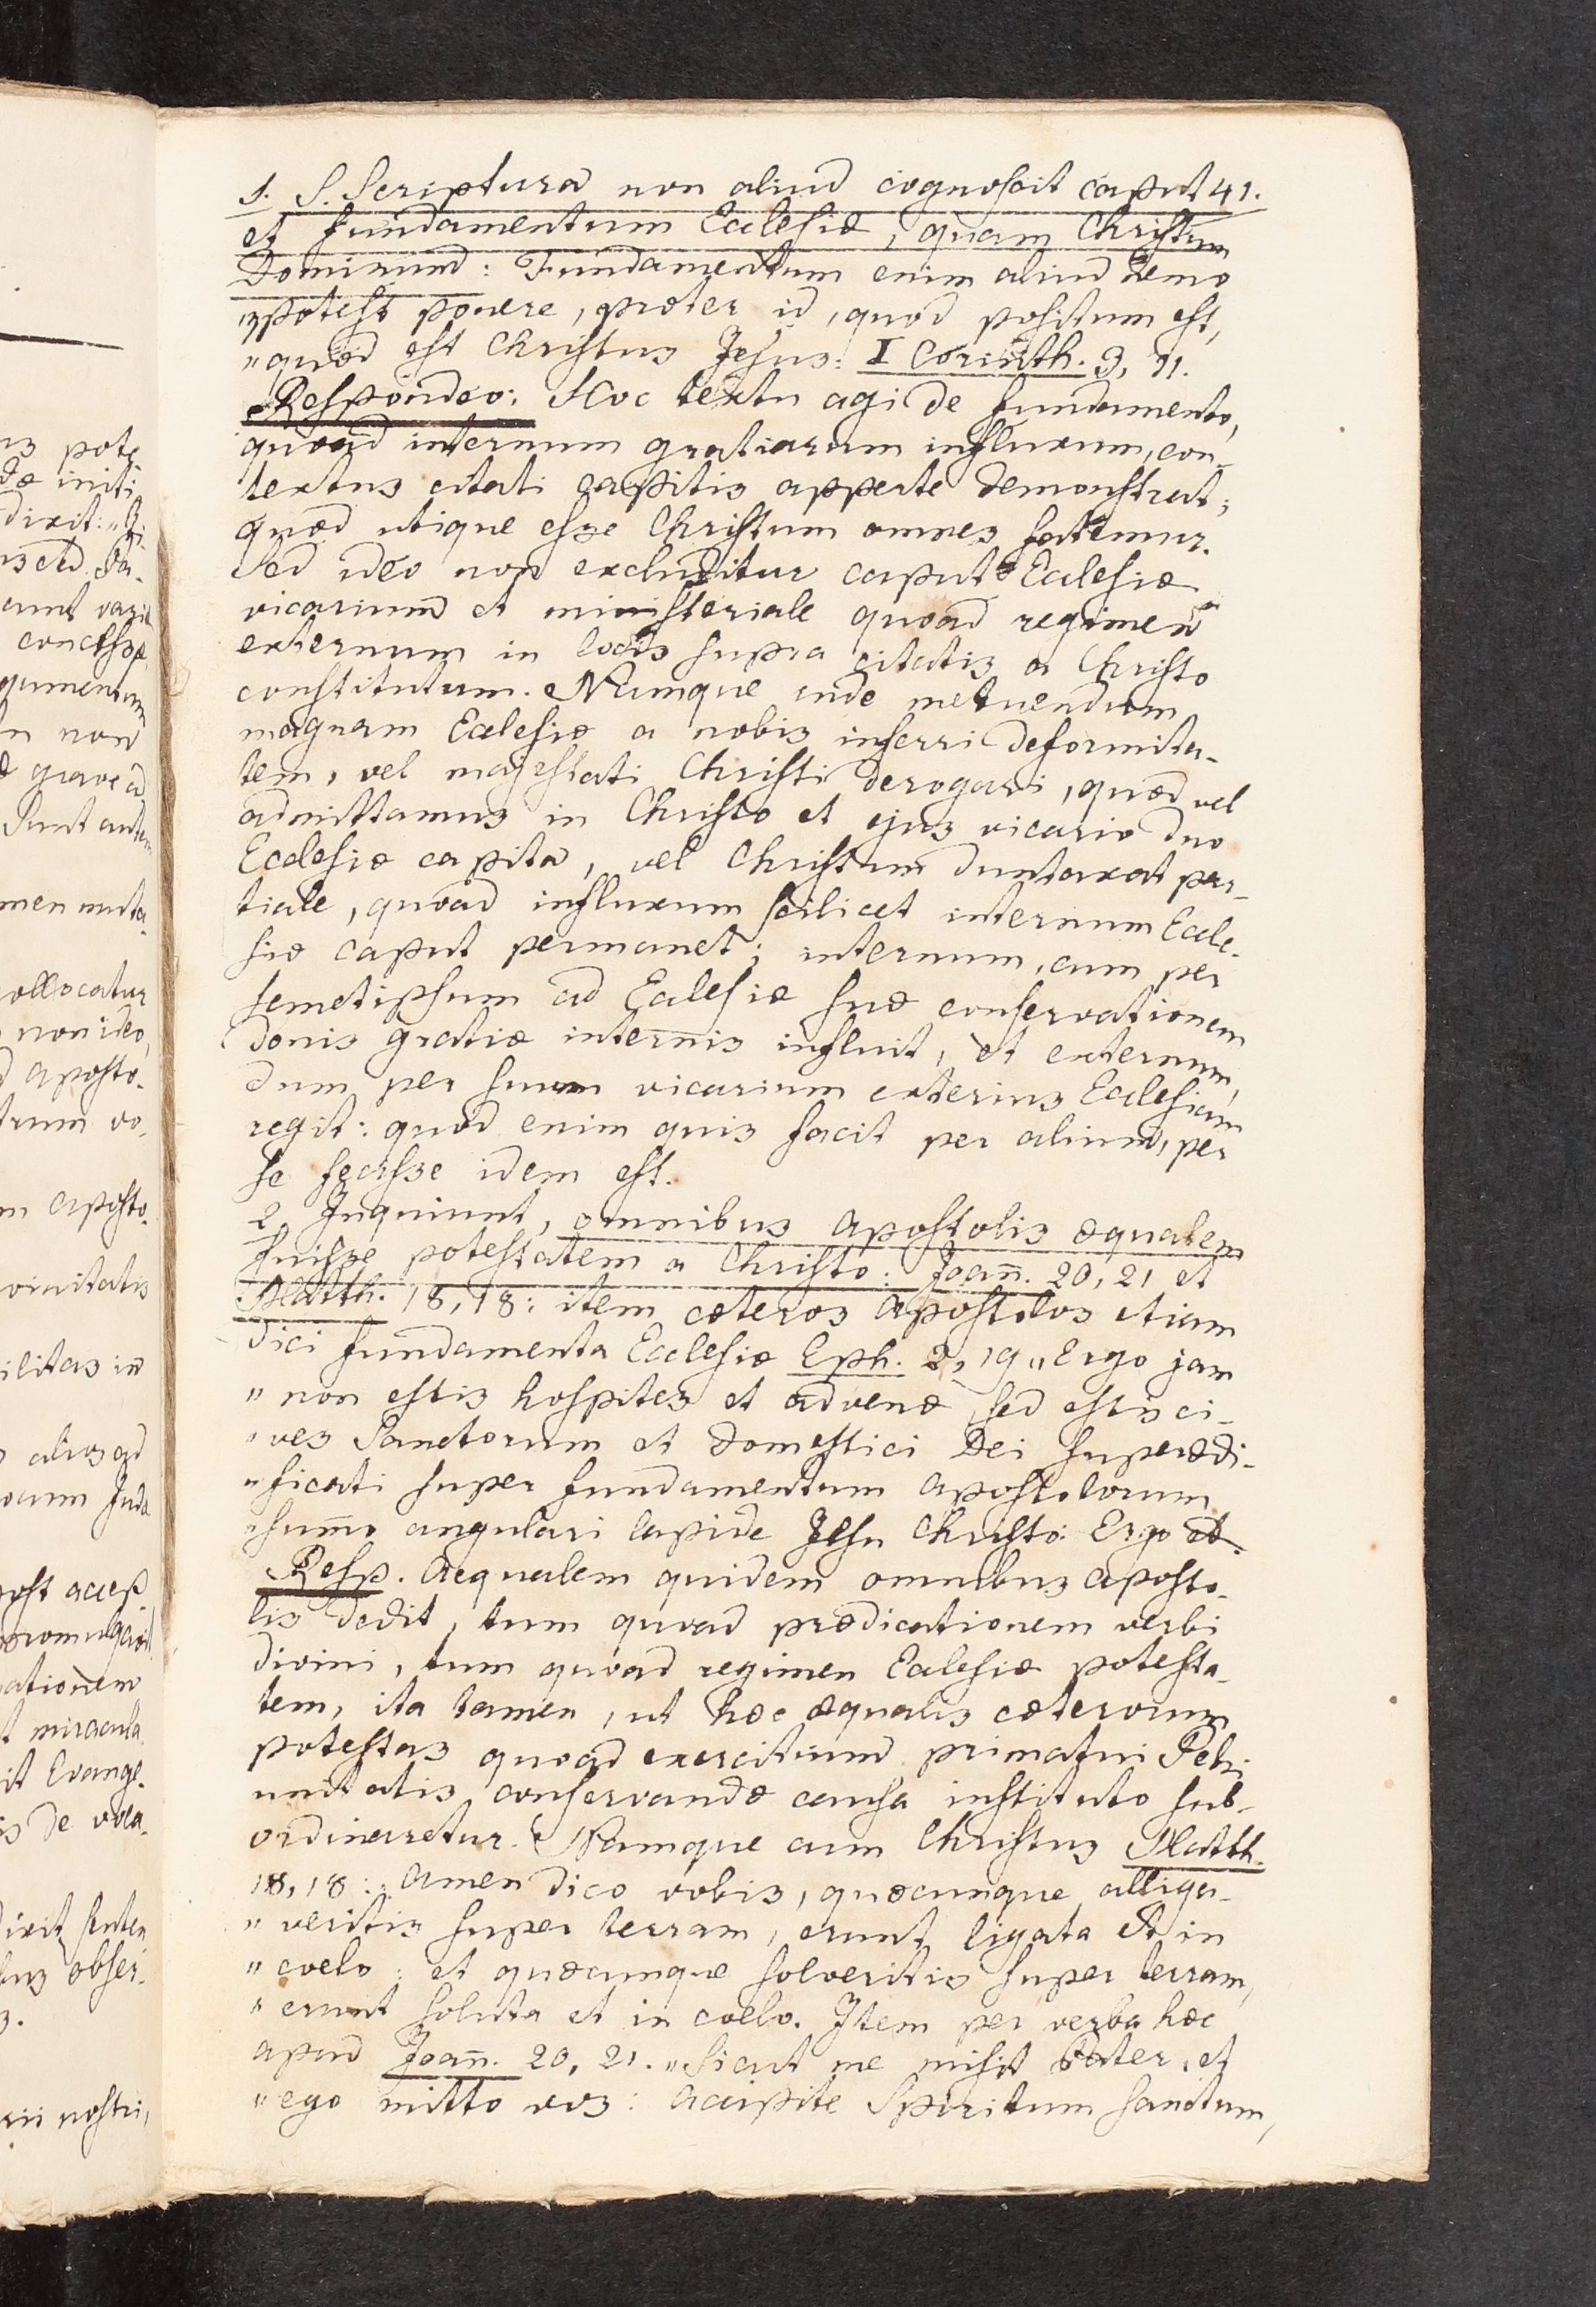 1. S. Scriptura non aliud cognoscit caput 41.
et fundamentum Ecclesiæ, quam Christum
Dominum: Fundamentum enim aliud nemo
„potest ponere, præter id, quod positum est,
„quod est Christus Jesus: I Corinth. 3, 11.
Respondeo: Hoc textu agi de fundamento,
quoad internum gratiarum influxum, con-
textus citati capitis apperte demonstrat;
quod utique esse Christum omnes fatemur.
Sed ideo non excluditur caput Ecclesiæ
vicarium et ministeriale quoad regimen
externum in locis supra citatis a Christo
constitutum. Numque inde metuendum
magnam Ecclesiæ a nobis inferri deformita-
tem, vel majestati Christi derogari, quod vel
admittamus in Christo et ejus vicario duo
Ecclesiæ capita, vel Christum duntaxat par-
tiale, quoad influxum scilicet internum Eccle-
siæ caput permanet; internum, cum per
semetipsum ad Ecclesiæ suæ conservationem
donis gratiæ internis influit, et externum,
dum per suum vicarium exterius Ecclesiam
regit: quod enim quis facit per alium, per
se fecisse idem est.
2 Inquiunt, omnibus Apostolis æqualem
fuisse potestatem a Christo: Joan̄. 20, 21 et
Matth. 18, 18: item cæteros Apostolos etiam
dici fundamenta Ecclesiæ Eph. 2, 19 „Ergo jam
„non estis hospites et advenæ, sed estis ci-
„ves Sanctorum et domestici Dei superædi-
„ficati super fundamentum Apostolorum
„sum̄o angulari lapide Jesu Christo: Ergo et.
Resp. Aequalem quidem omnibus Aposto-
lis dedit, tum quoad prædicationem verbi
divini, tum quoad regimen Ecclesiæ potesta-
tem, ita tamen, ut hæc æqualis cæterorum
potestas quoad exercitium primatui Petri
unitatis conservandæ causa instituto sub-
ordinaretur. Namque cum Christus Matth.
18, 18: „Amen dico vobis, quæcunque alliga-
„veritis super terram, erunt ligata et in
„coelo: et quæcunque solveritis super terram,
„erunt soluta et in coelo. Item per verba hæc
apud Joan̄. 20, 21. „Sicut me misit Pater, et
„ego mitto vos: Accipite Spiritum sanctum,